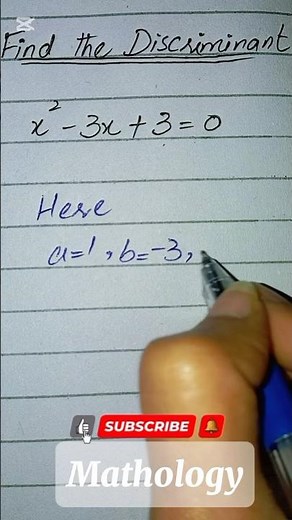 Find the Discriminant
x² - 3x + 3 = 0
Here
a=1, b=-3,
SUBSCRIBE
Mathology